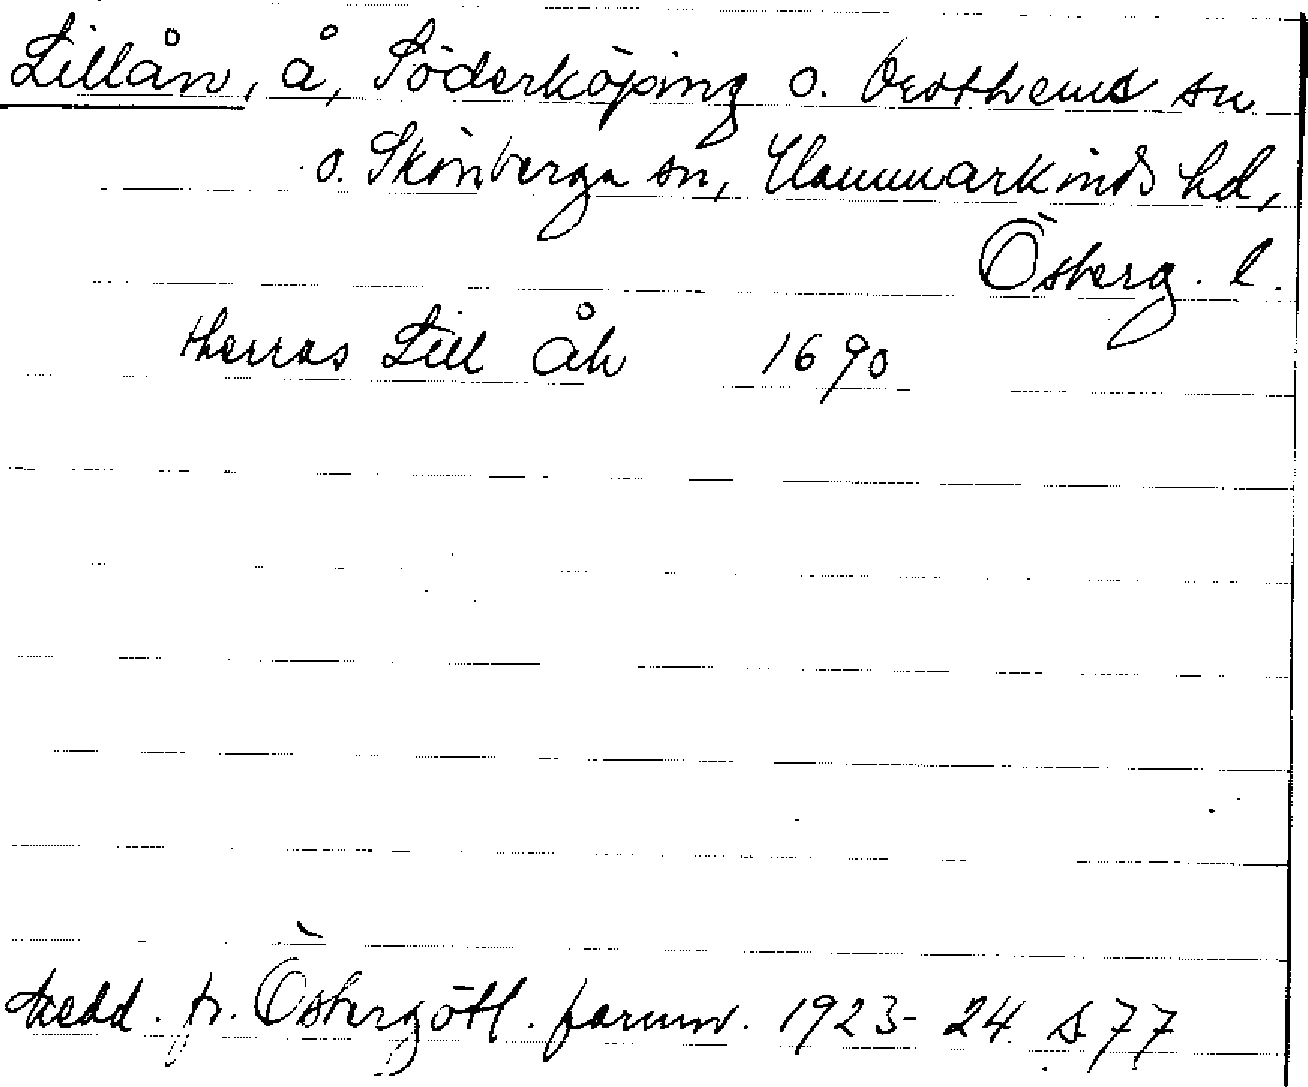 Lillån, å, Söderköping o. Drothems sn
o. Skönberga sn, Hammarkinds hd,
Österg. l.
therras Lill åh 1690
Medd. fr. Östergötl. fornm. 1923-24 s 77